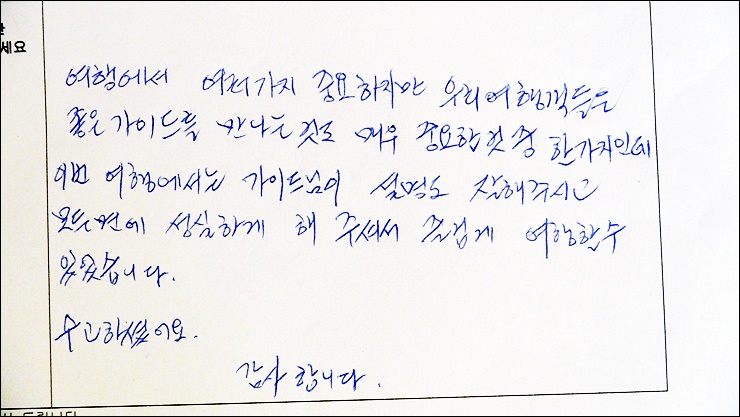 세요
여행에서 여러가지 중요하지만 우리여행객들은
좋은 가이드를 만나는 것도 매우 중요한것 중 한가지인데
이번 여행에서는 가이드님이 설명도 잘해주시고
모든면에 성실하게 해 주셔서 즐겁게 여행할수
있었습니다.
수고하셨어요.
감사 합니다.